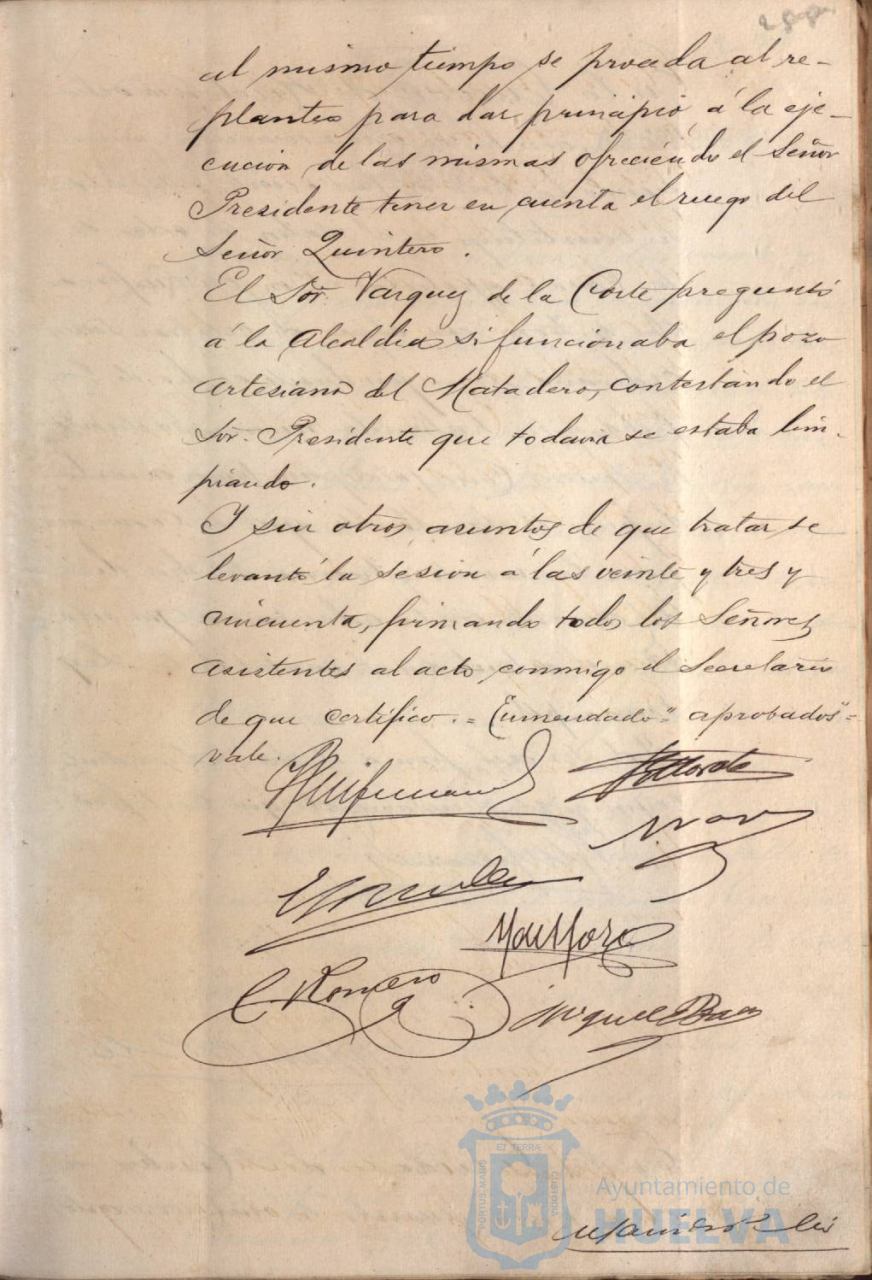 al mismo tiempo se proceda al re-
planteo para dar principio á la eje-
cución de las mismas ofreciendo el Señor
Presidente tener en cuenta el ruego del
Señor Quintero.
El Sor. Vazquez de la Corte preguntó
á la Alcaldia si funcionaba el pozo
artesiano del Matadero, contestando el
Sor. Presidente que todavia se estaba lim-
piando.
Y sin otros asuntos de que tratar se
levantó la sesión á las veinte y tres y
cincuenta, firmando todos los Señores
asistentes al acto conmigo el Secretario
de que certifico. = Enmendado = "aprobados" =
vale.
C. Romero
Miguel Baez
ET TERRÆ
PORTUS MARIS
CUSTODIA
Ayuntamiento de
HUELVA